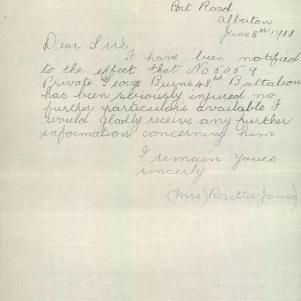 Port Road
Alberton
June 8th 1918
Dear Sirs
I have been notified
to the effect that No 5059
Private George Burns 48th Battalion
has been seriously injured no
further particulars available I
would gladly receive any further
information concerning him
I remain yours
sincerely
(Mrs) Rosetta James)